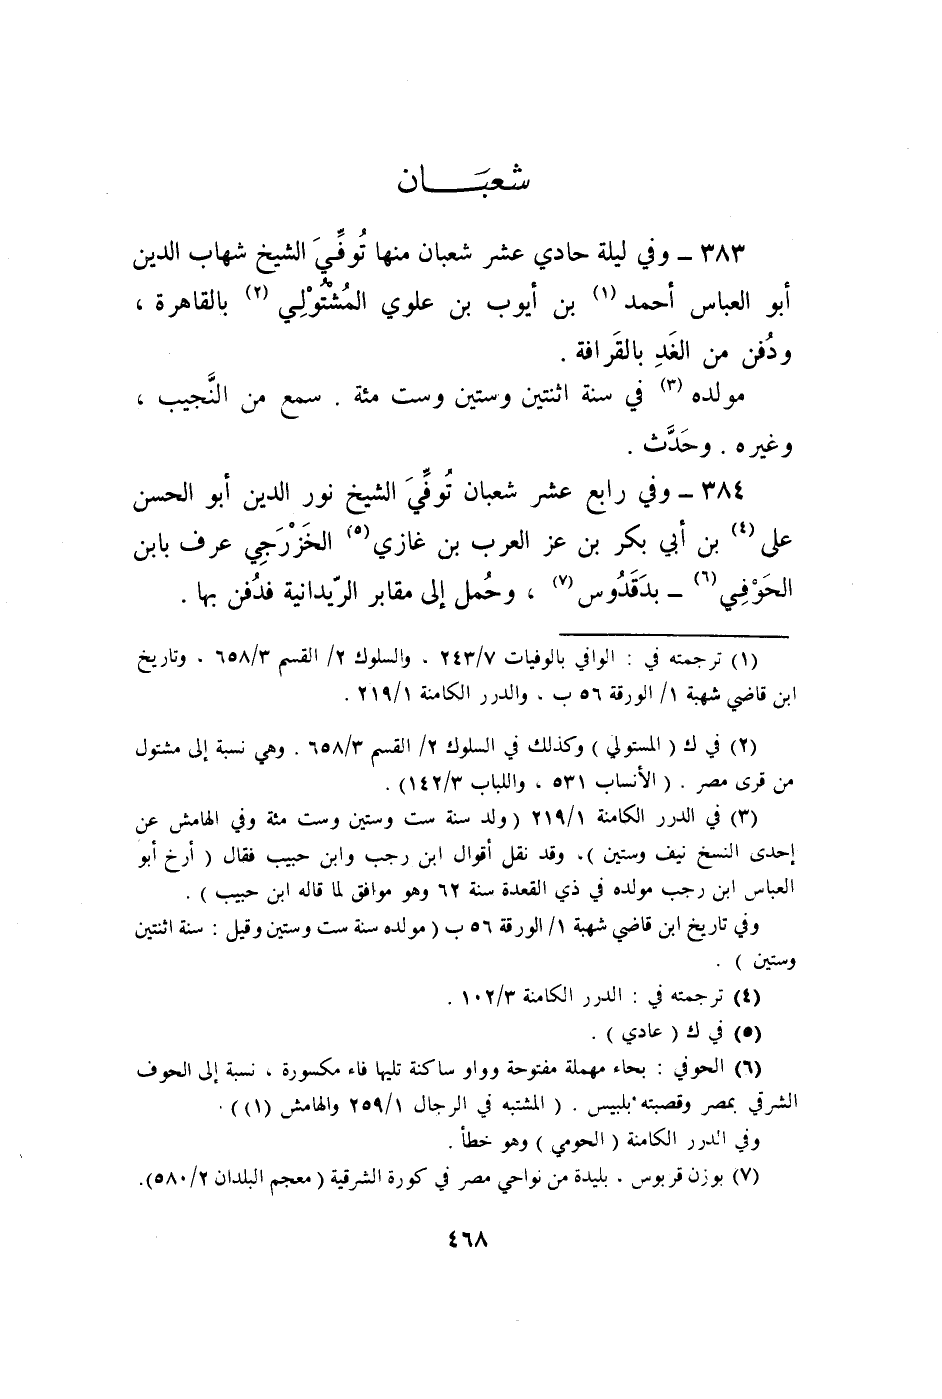 شعبَـــــان
٣٨٣ ـ وفي ليلة حادي عشر شعبان منها تُوفِّيَ الشيخ شهاب الدين
أبو العباس أحمد (١) بن أيوب بن علوي المُشْتُوْلِي (٢) بالقاهرة ،
ودُفن من الغَدِ بالقَرافة .
مولده (٣) في سنة اثنتين وستين وست مئة . سمع من النَّجيب ،
وغيره . وحَدَّث .
٣٨٤ ـ وفي رابع عشر شعبان تُوفِّيَ الشيخ نور الدين أبو الحسن
علي (٤) بن أبي بكر بن عز العرب بن غازي (٥) الخَزْرَجِي عرف بابن
الحَوْفِي (٦) ـ بدَقَدُوس (٧) ، وحُمل إلى مقابر الرّيدانية فدُفن بها .
(١) ترجمته في : الوافي بالوفيات ٢٤٣/٧ . والسلوك ٢/ القسم ٦٥٨/٣ . وتاريخ
ابن قاضي شهبة ١/ الورقة ٥٦ ب . والدرر الكامنة ٢١٩/١ .
(٢) في ك ( المستولي ) وكذلك في السلوك ٢/ القسم ٦٥٨/٣ . وهي نسبة إلى مشتول
من قرى مصر . ( الأنساب ٥٣١ ، واللباب ١٤٢/٣) .
(٣) في الدرر الكامنة ٢١٩/١ ( ولد سنة ست وستين وست مئة وفي الهامش عن
إحدى النسخ نيف وستين ). وقد نقل أقوال ابن رجب وابن حبيب فقال ( أرخ أبو
العباس ابن رجب مولده في ذي القعدة سنة ٦٢ وهو موافق لما قاله ابن حبيب ) .
وفي تاريخ ابن قاضي شهبة ١/ الورقة ٥٦ ب ( مولده سنة ست وستين وقيل : سنة اثنتين
وستين ) .
(٤) ترجمته في : الدرر الكامنة ١٠٢/٣ .
(٥) في ك ( عادي ) .
(٦) الحوفي : بحاء مهملة مفتوحة وواو ساكنة تليها فاء مكسورة ، نسبة إلى الحوف
الشرقي بمصر وقصبته بلبيس . ( المشتبه في الرجال ٢٥٩/١ والهامش (١)) .
وفي الدرر الكامنة ( الحومي ) وهو خطأ .
(٧) بوزن قربوس . بليدة من نواحي مصر في كورة الشرقية ( معجم البلدان ٥٨٠/٢).
٤٦٨